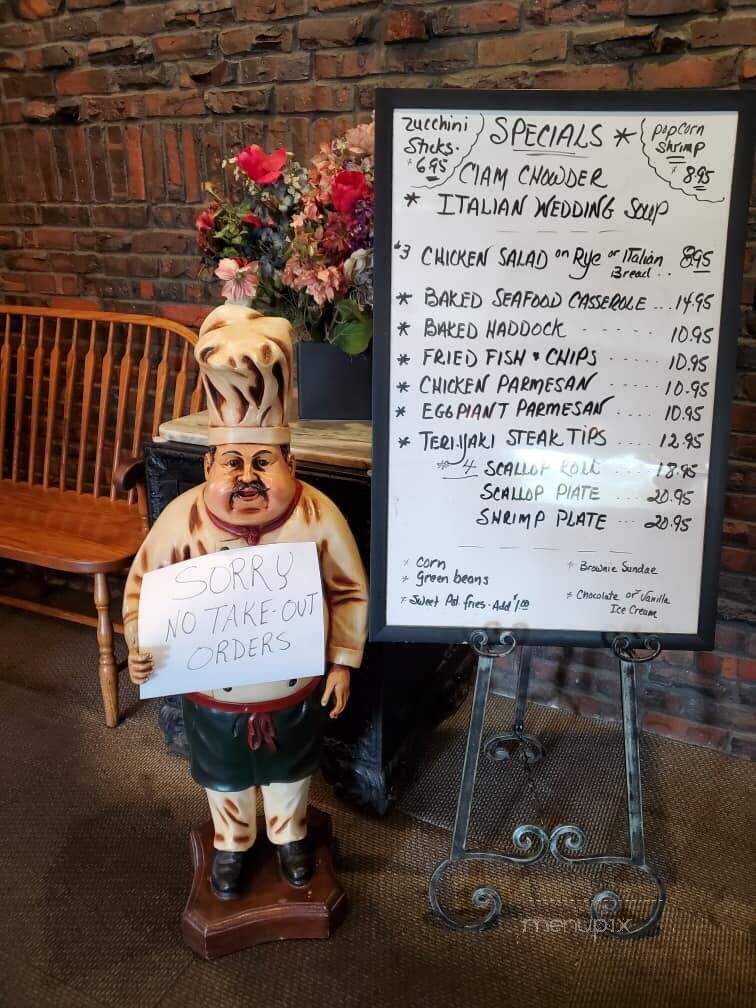 zucchini
Sticks.
6.95
SPECIALS *
popcorn
shrimp
8.95
CLAM CHOWDER
* ITALIAN WEDDING SOUP
#3 CHICKEN SALAD on Rye or Italian Bread.. 8.95
* BAKED SEAFOOD CASSEROLE ... 14.95
* BAKED HADDOCK ----- 10.95
* FRIED FISH & CHIPS ---- 10.95
* CHICKEN PARMESAN ---- 10.95
* EGGPLANT PARMESAN ---- 10.95
* TERIJJAKI STEAK TIPS .... 12.95
4 SCALLOP ROLL ---- 18.95
SCALLOP PLATE .... 20.95
SHRIMP PLATE ... 20.95
* corn
* green beans
* Sweet Pot. fries. Add $1.00
* Brownie Sundae
* Chocolate or Vanilla
Ice Cream
SORRY
NO TAKE-OUT
ORDERS
menupix